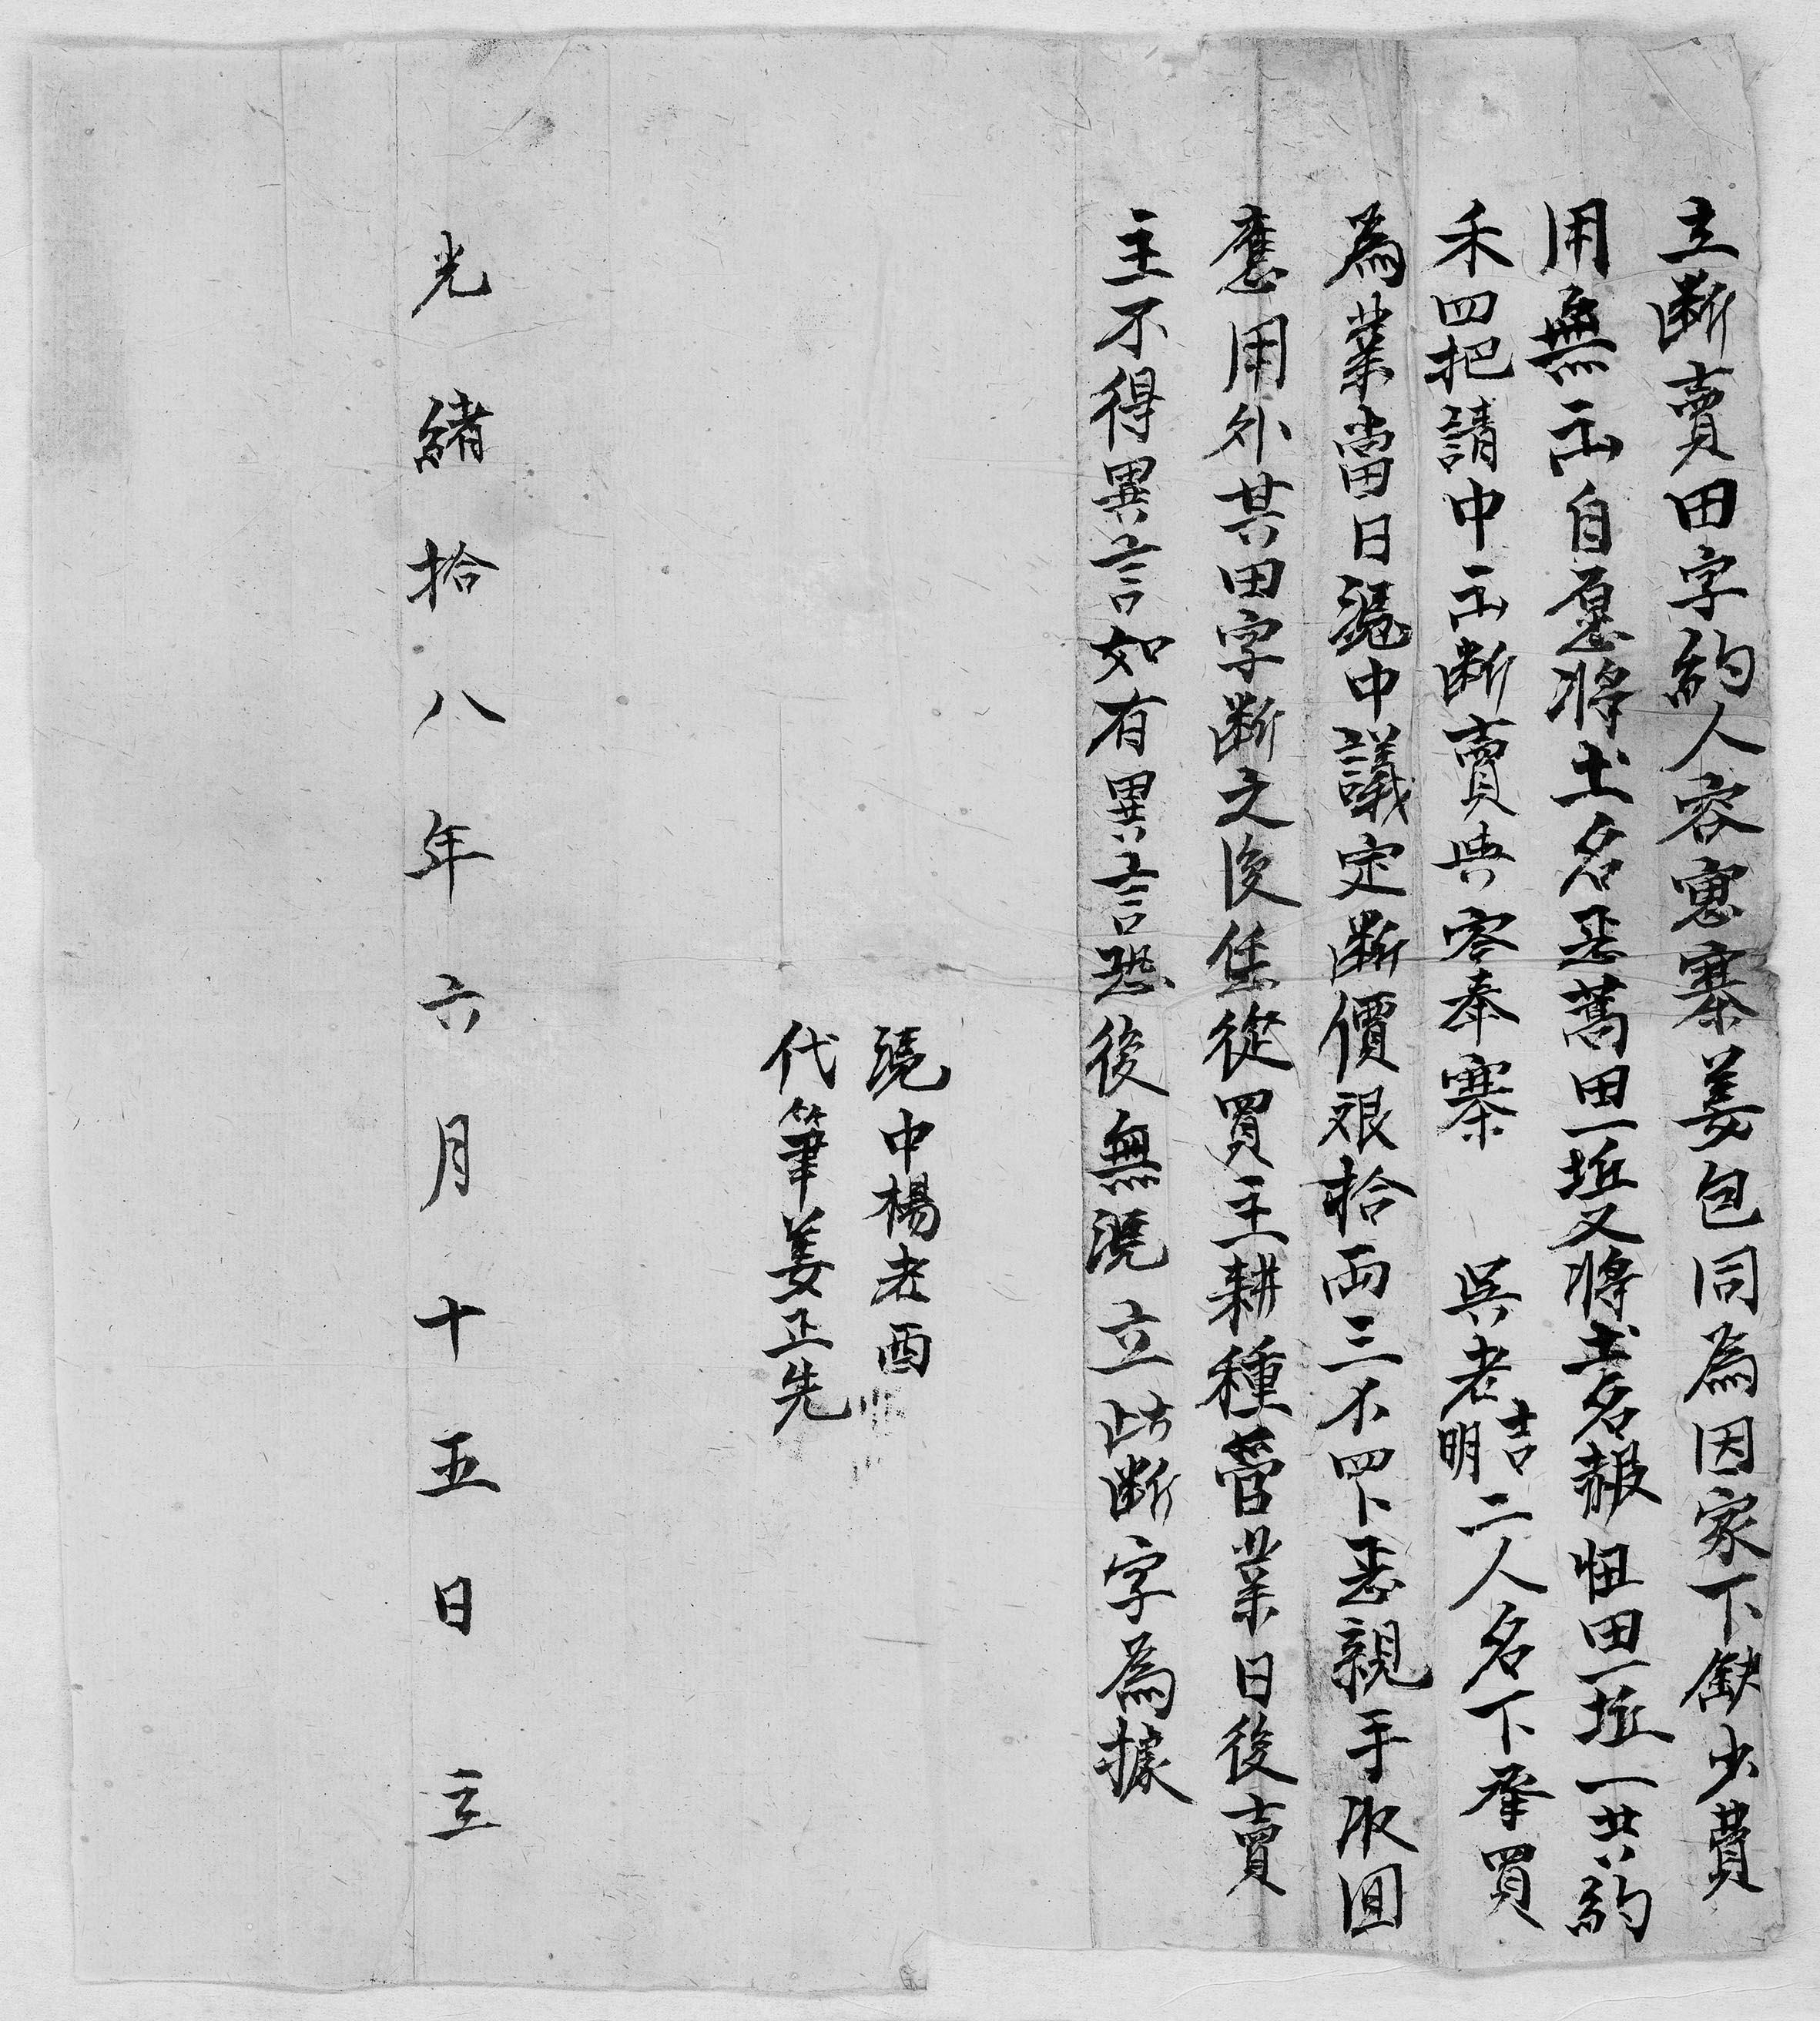 立断賣田字約人容寬寨姜包同為因家下缺少費
用無出自愿將土名惡蒿田一坵又將土名報忸田一坵一共約
禾四把請中出断賣典容奉寨 吳老吉明二人名下承買
為業當日憑中議定断價艮拾両三不四卜悉親手收回
應用外其田字断之後任從買主耕種管業日後賣
主不得異言如有異言恐後無憑立此断字為據
憑中楊老酉
代筆姜正先
光緒拾八年六月十五日立